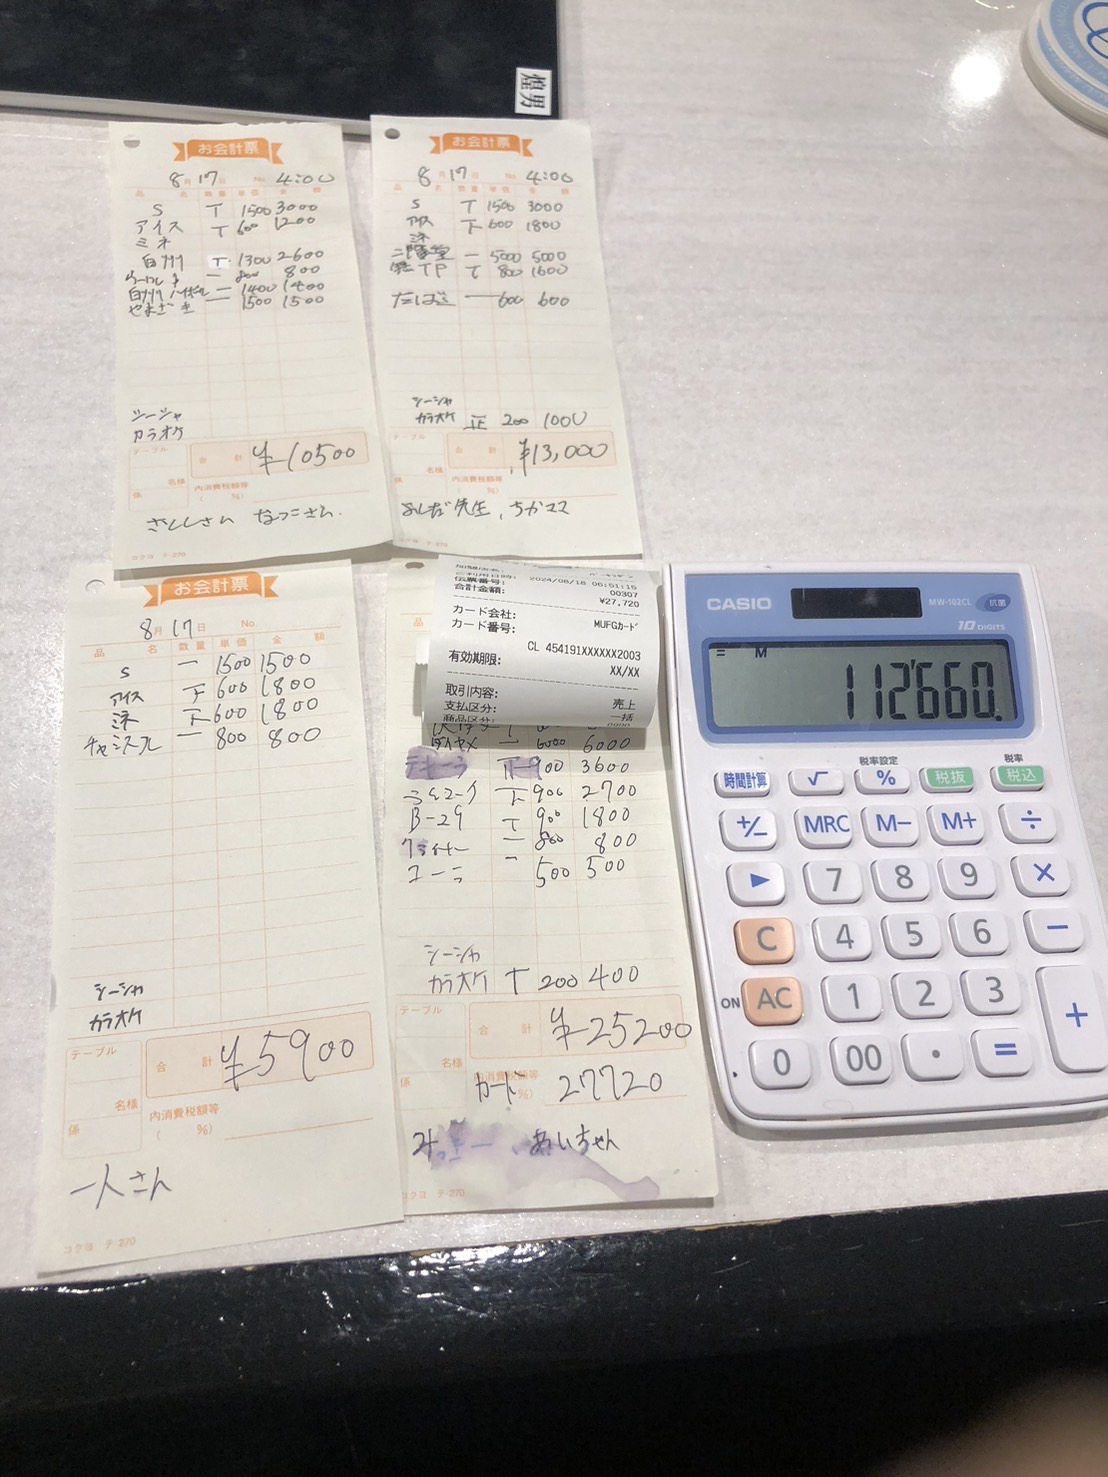 煌男
お会計票
8月17日 No. 4:00
品 名 数量 単価 金 額
S T 1500 3000
アイス T 600 1200
ミネ
白州 T 1300 2600
ウーロン 一 800 800
白州ハイボール 一 1400 1400
やまざき 一 1500 1500
シーシャ
カラオケ
テーブル
合 計 ¥10500
名様
係 内消費税額等
( %)
さとしさん なつこさん.
コクヨ テ-270
お会計票
8月17日 No. 4:00
品 名 数量 単価 金 額
S T 1500 3000
アイス 下 600 1800
ミネ
二階堂 一 5000 5000
TP T 800 1600
たばこ 一 600 600
シーシャ
カラオケ 正 200 1000
テーブル
合 計 ¥13,000
名様
係 内消費税額等
( %)
よしだ先生、ちかママ
コクヨ テ-270
お会計票
8月17日 No.
品 名 数量 単価 金 額
S 一 1500 1500
アイス 下 600 1800
ミネ 下 600 1800
チャミスル 一 800 800
シーシャ
カラオケ
テーブル
合 計 ¥5900
名様
係 内消費税額等
( %)
一人さん
コクヨ テ-270
ご利用日時: 2024/08/18 06:51:15
伝票番号: 00307
合計金額: ¥27,720
カード会社: MUFGカード
カード番号: CL 454191XXXXXX2003
有効期限: XX/XX
取引内容: 売上
支払区分: 一括
商品区分: 0000
ダイヤメ 一 6000 6000
テキーラ 900 3600
下 900 2700
B-29 T 900 1800
クライナー 一 800 800
コーラ 一 500 500
シーシャ
カラオケ T 200 400
テーブル
合 計 ¥25200
名様
内消費税額等
係 カード %) 27720
あいちゃん
コクヨ テ-270
CASIO MW-102CL 抗菌
10 DIGITS
= M
112'660.
税率設定 税率
時間計算 √ % 税抜 税込
+/- MRC M- M+ ÷
▶ 7 8 9 ×
C 4 5 6 −
ON AC 1 2 3 +
0 00 · =